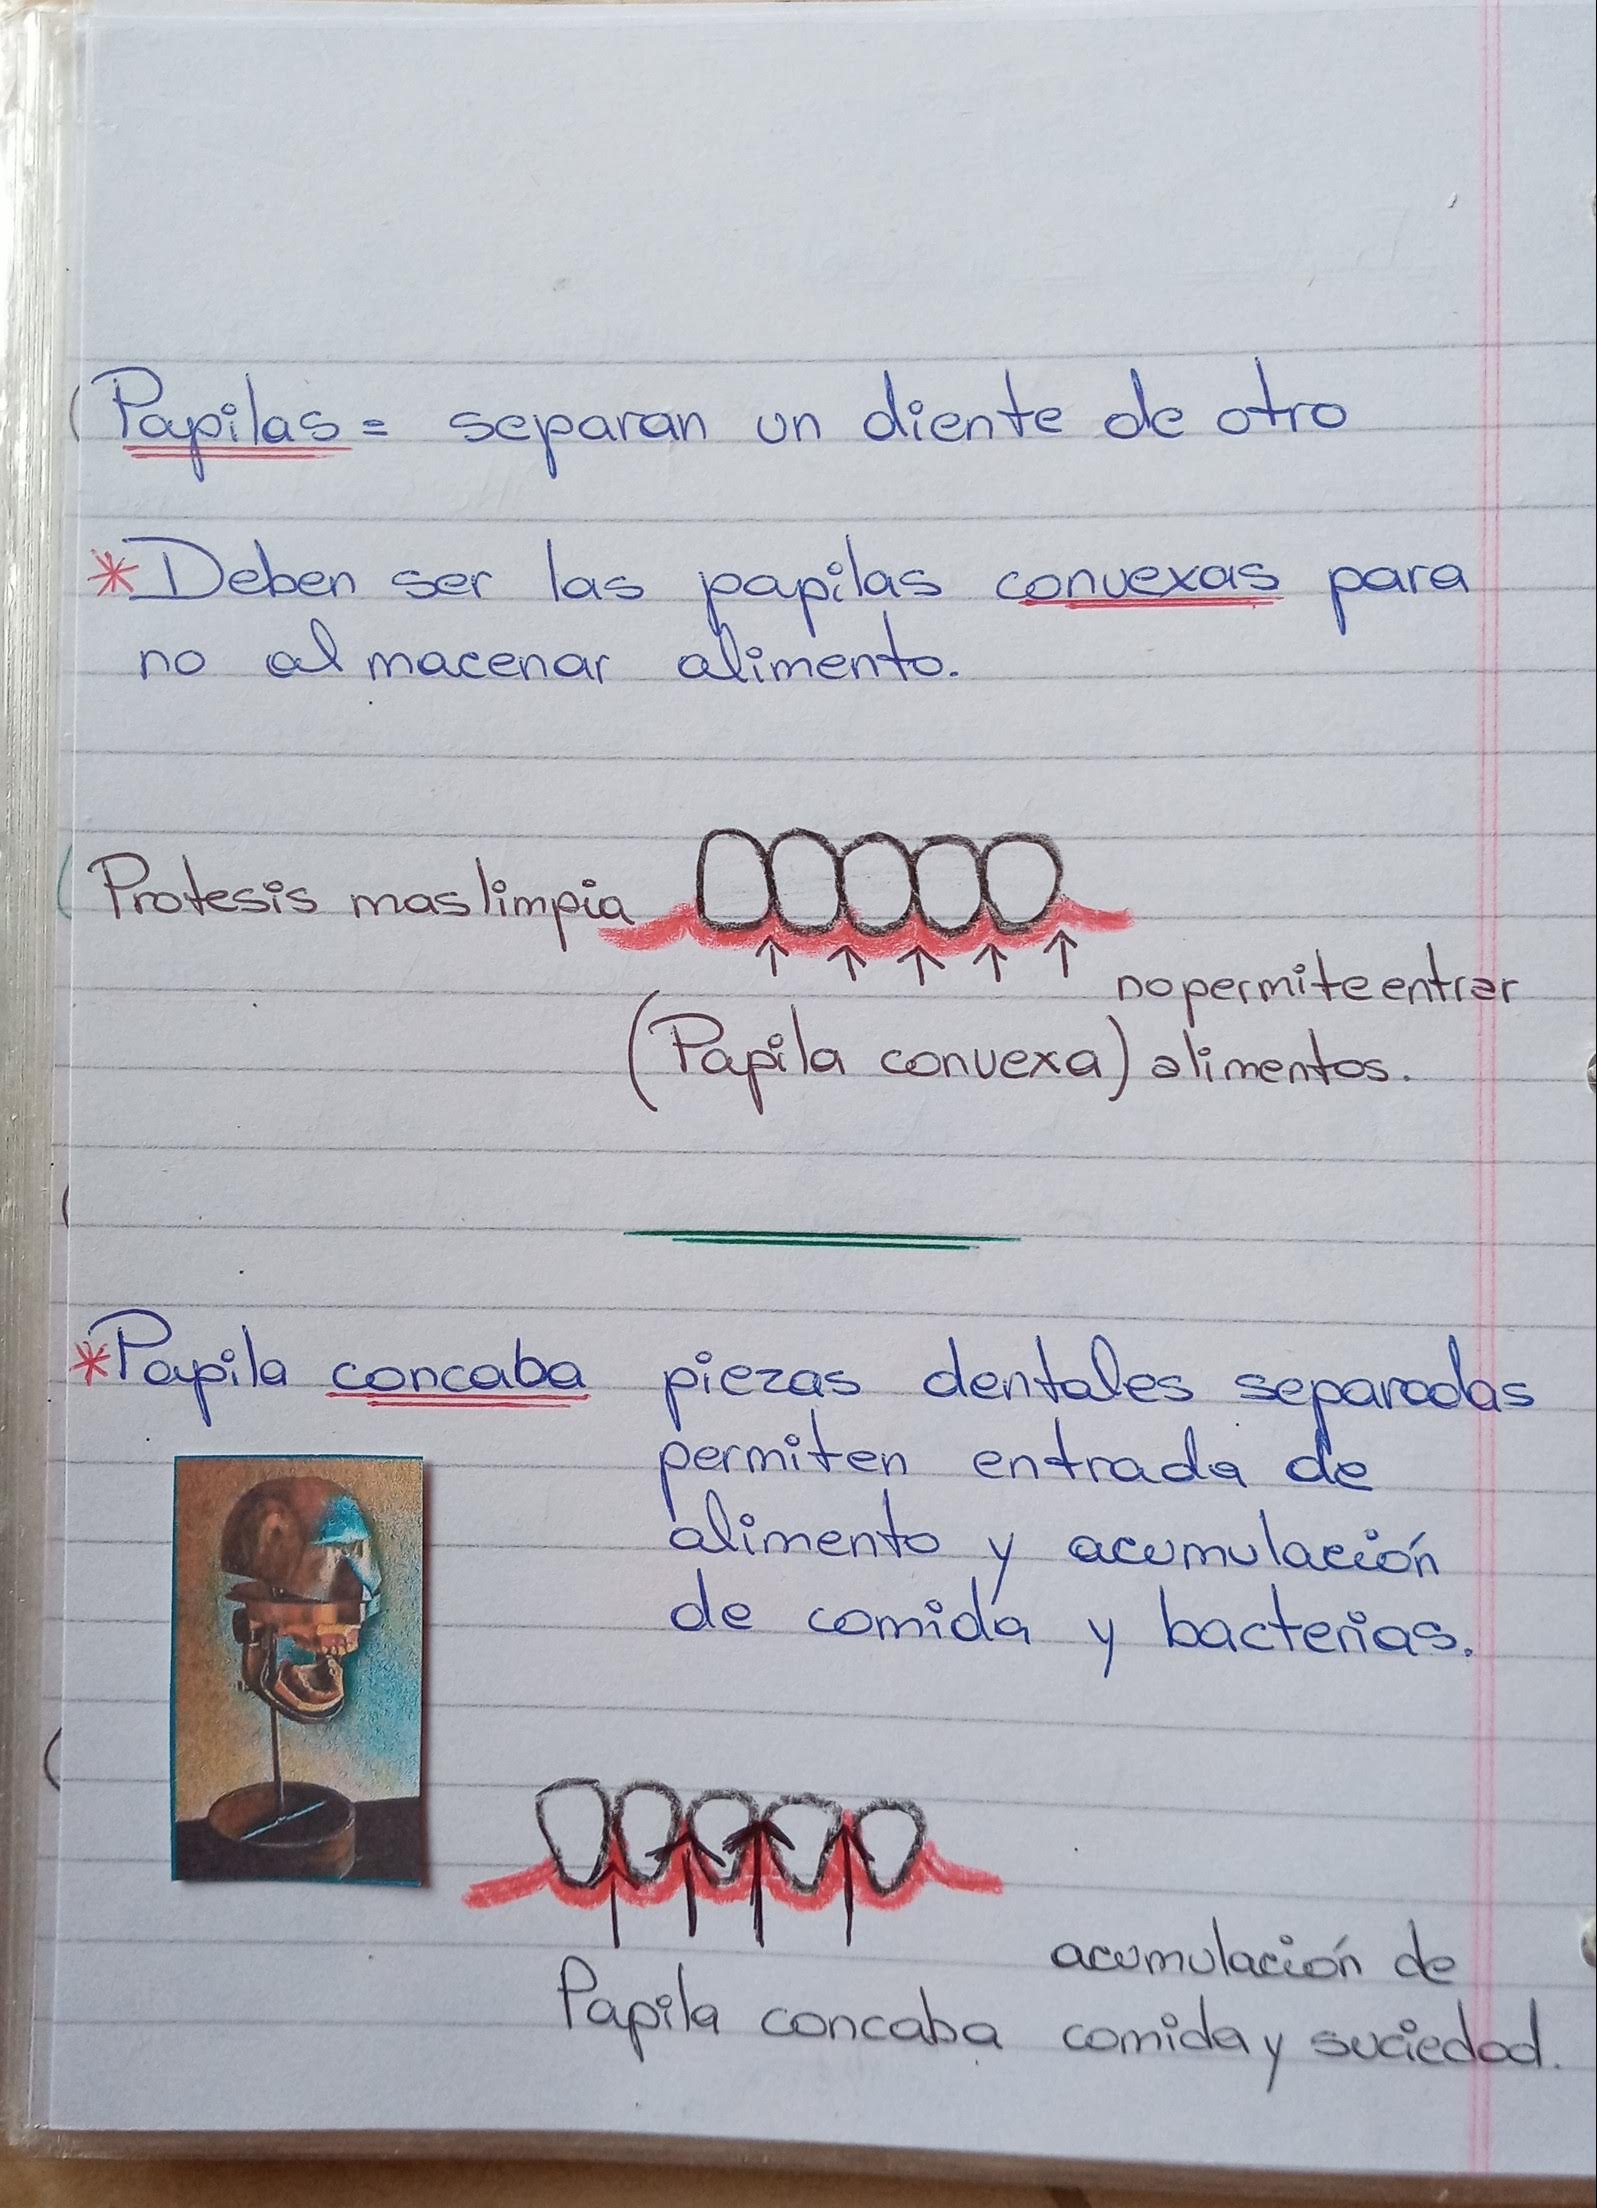 Papilas = separan un diente de otro
* Deben ser las papilas convexas para
no almacenar alimento.
Protesis mas limpia
no permite entrar
(Papila convexa) alimentos.
* Papila concaba piezas dentales separadas
permiten entrada de
alimento y acumulación
de comida y bacterias.
acumulación de
Papila concaba comida y suciedad.